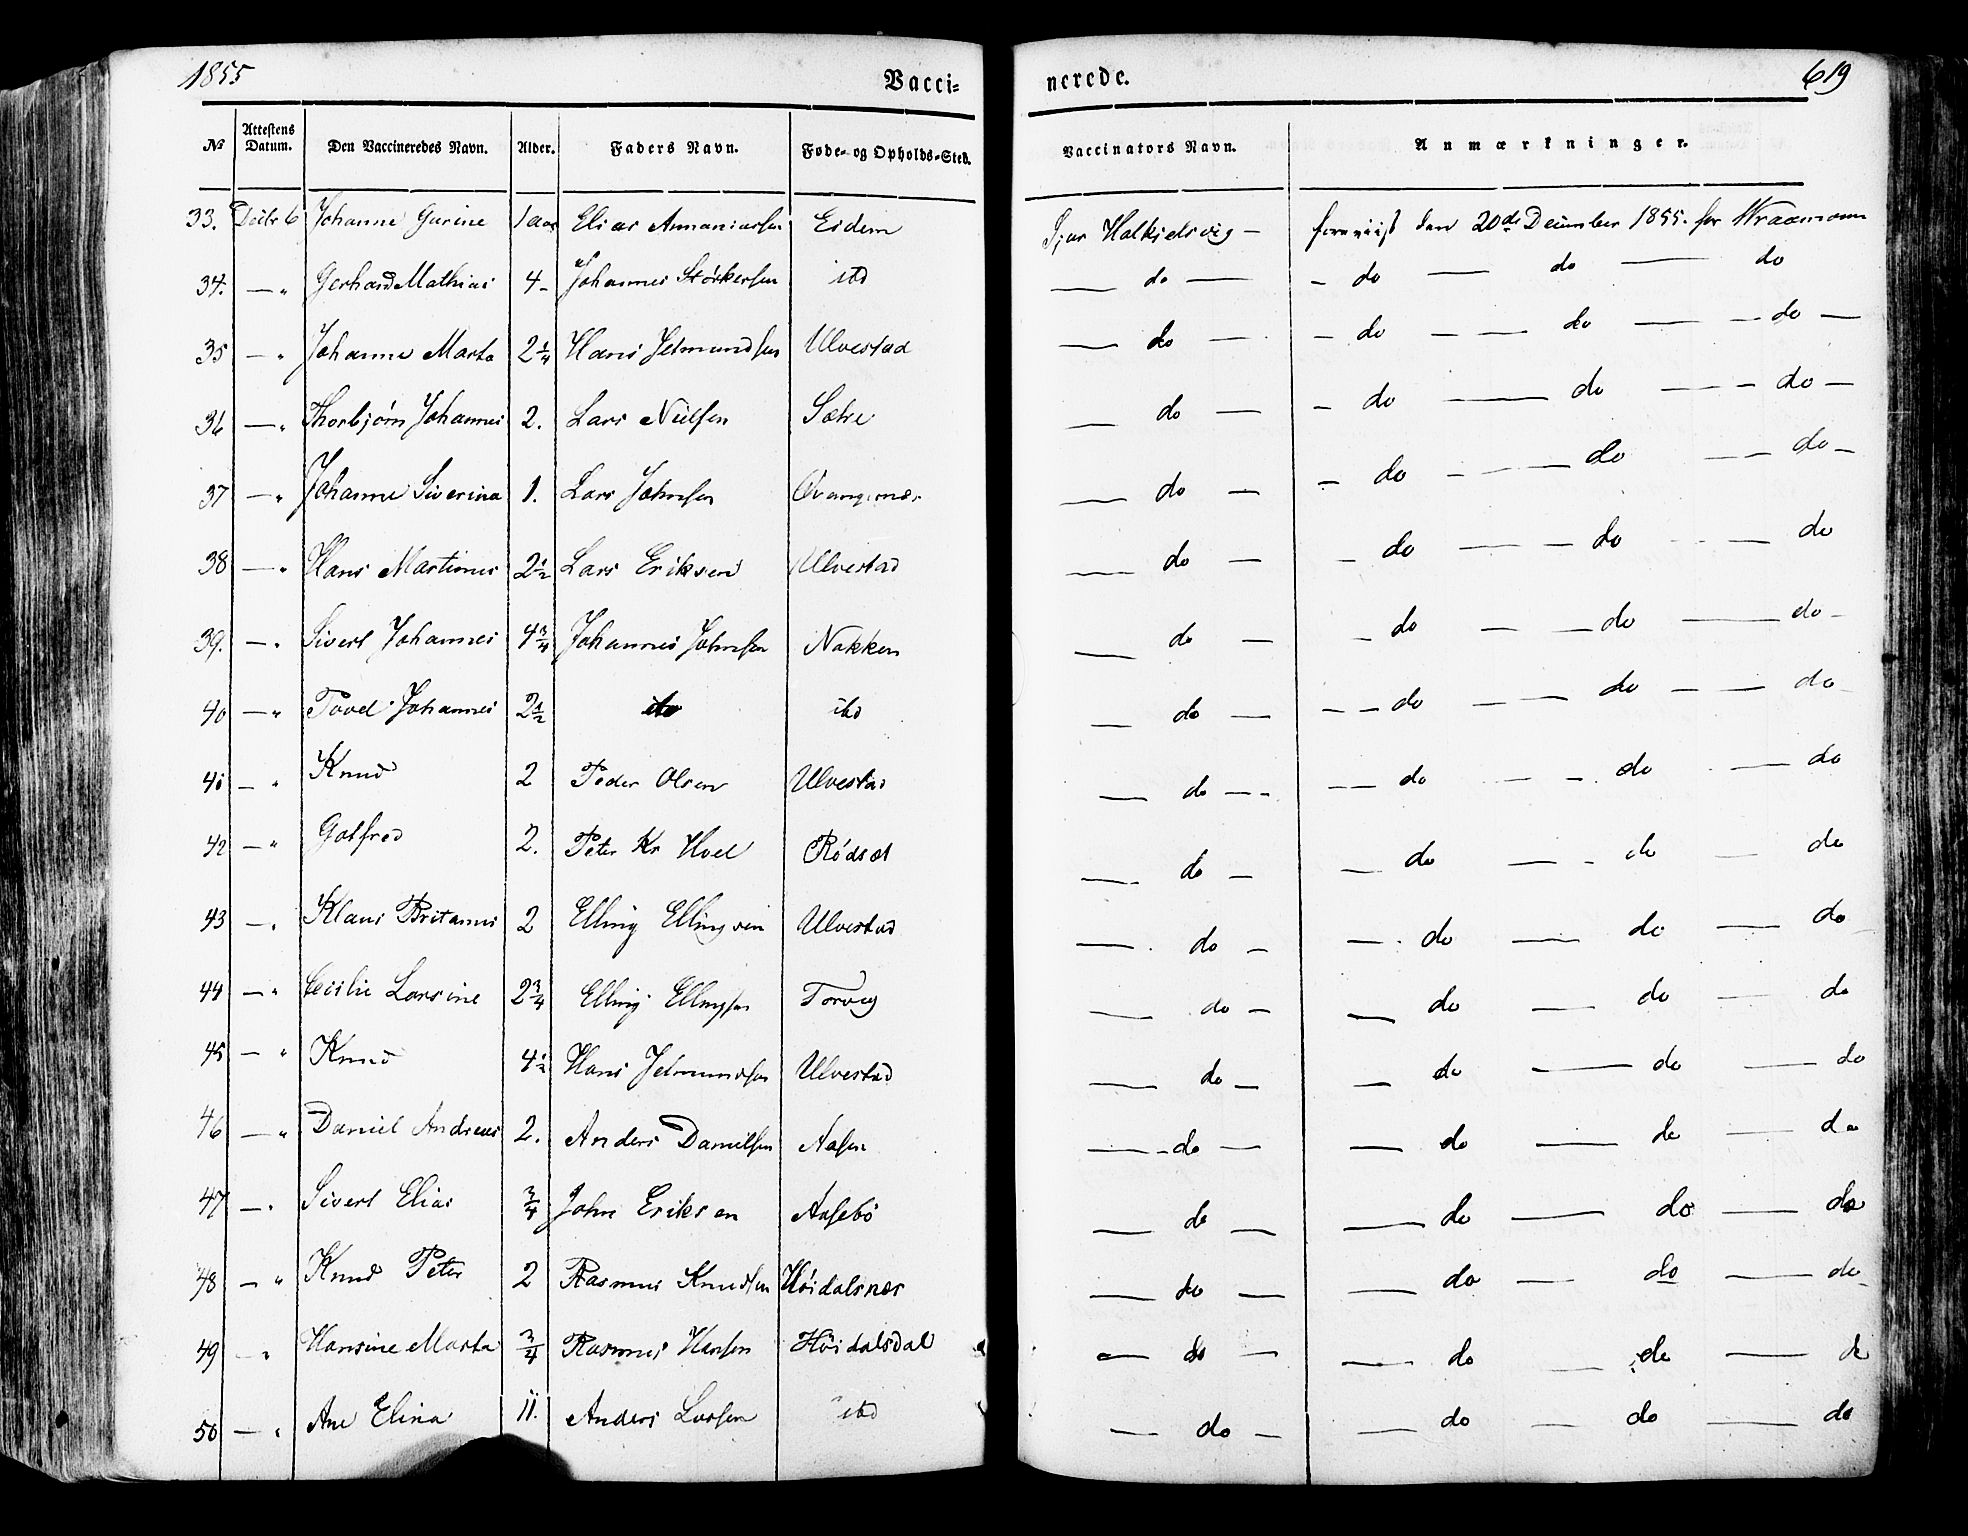 1855 Vacci- nerede. 619
No Attestens Datum. Den Vaccineredes Navn. Alder. Faders Navn. Føde- og Opholds-Sted. Vaccinators Navn. Anmærkninger.
33. Decbr 6 Johanne Gurine 1 aar Elias Annaniassen Eidem Sjur Halkjelsvig — foreviist den 20de December 1855. for
34. — " Gerhard Mathias 4 - Johannes Størkersen itd — do — - do — do — do
35 — " Johanne Marta 2 1/4 Hans Jetmundsen Ulvestad — do — - do — — do — - do —
36 — " Thorbjørn Johannes 2. Lars Nielsen Sætre — do — - do — do — - do —
37 — " Johanne Siverina 1. Lars Johnsen — do — - do - — — do — - do -
38 — " Hans Martinus 2 1/2 Lars Eriksen Ulvestad — do — - do — — do - — do
39. — " Sivert Johannes 4 3/4 Johannes Johnsen Nakken — do — - do — — do — do -
40 — " Povel Johannes 2 1/2 ito itd — do — - - do — — do - — do -
41 — " Knud 2 Peder Olsen Ulvestad — do - - - - do - - do — do
42 — " Gotfred 2. Peter Kr Hoel Rødset — do - — do — - do — do
43 — " Klaus Britanus 2 Elling Ellingsen Ulvestad — do - — do — do — do
44 — " Cecilie Larsine 2 3/4 Elling Ellingsen Torvig — do - — do — do — do
45 — " Knud 4 1/2 Hans Jetmundsen Ulvestad — do - — do — do — do
46 — " Daniel Andreas 2. Anders Danielsen Aasen — - do — — do — do — do
47 — " Sivert Elias 3/4 John Eriksen Aasebø — do — — do — do — do
48 — " Knud Peter 2 Rasmus Knudsen Høidalsnær — do — — do — do — do
49 — " Hansine Marta 3/4 Rasmus Hansen Høidalsdal — do — — do — do — do
50 — " Ane Elina 11. Anders Larsen itd — do - — do — do — do